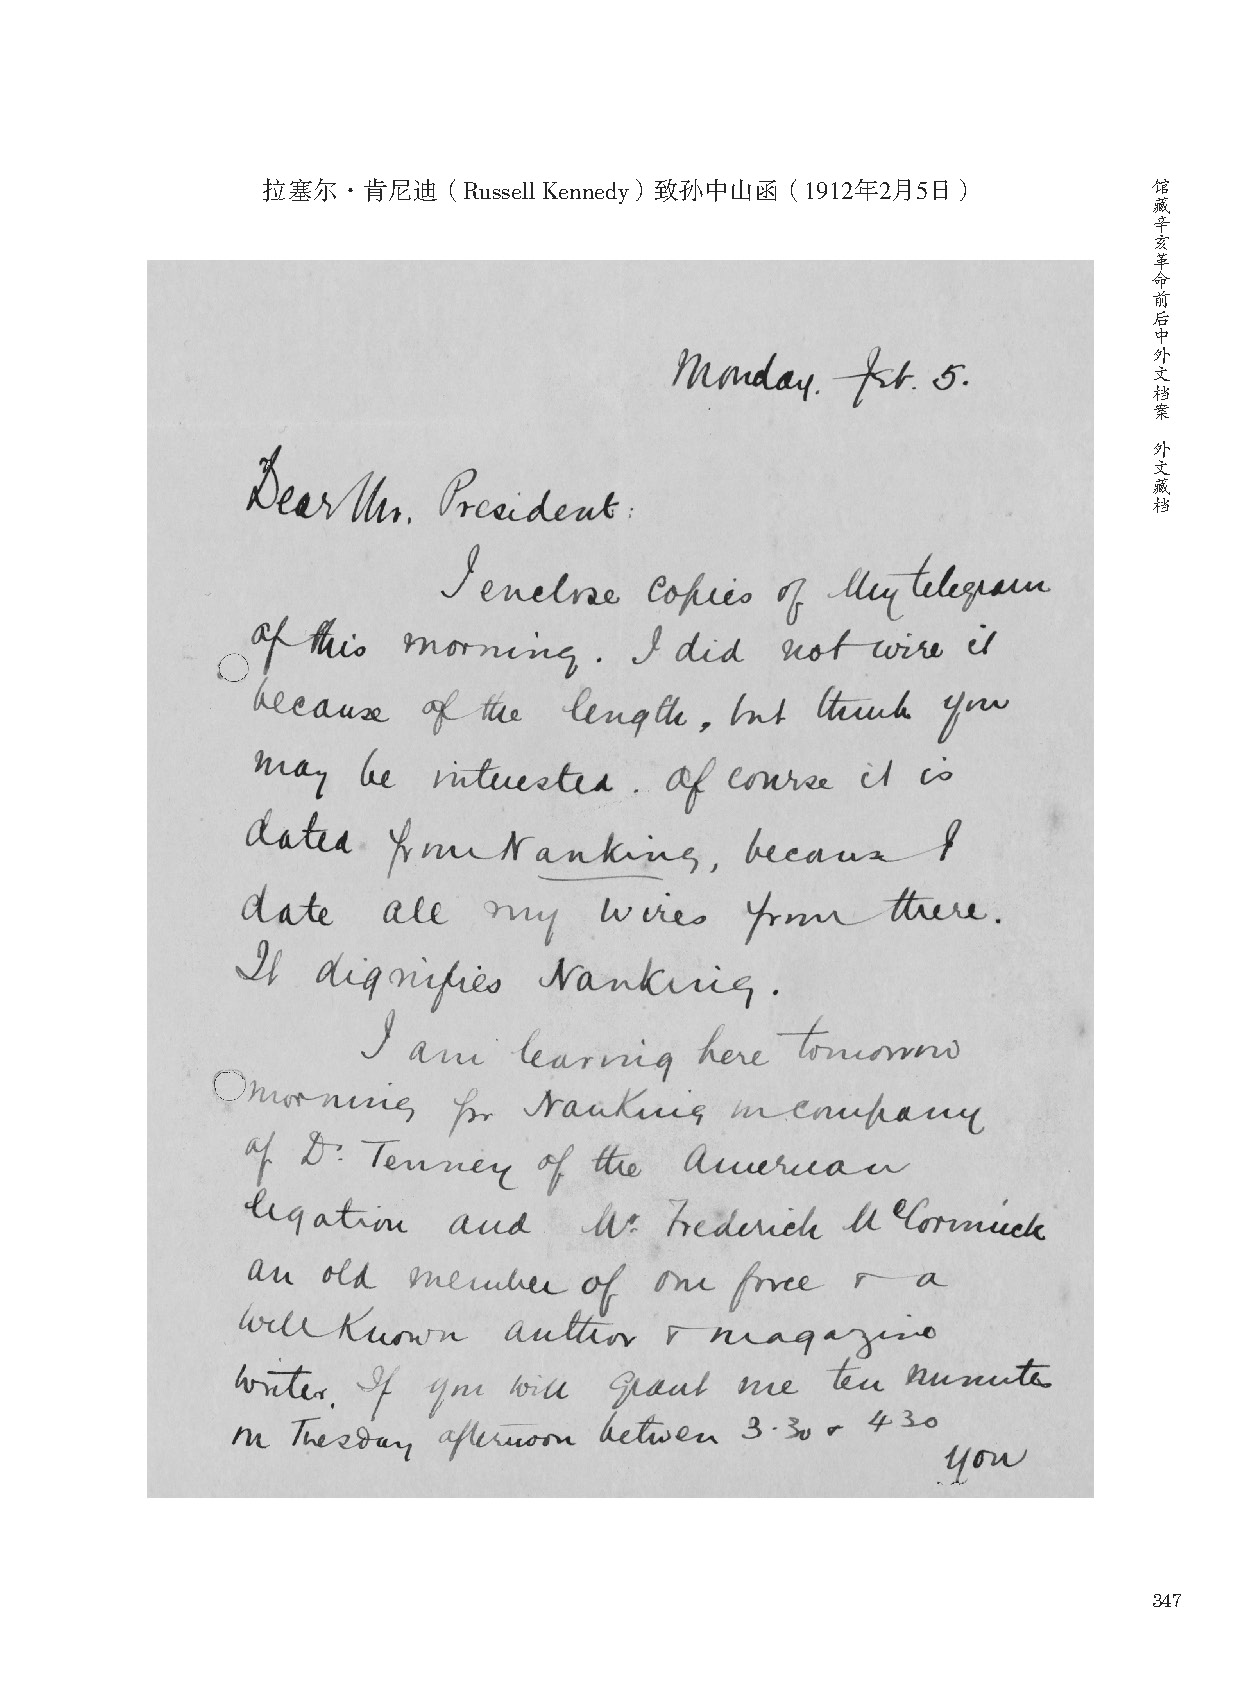 拉塞尔·肯尼迪（Russell Kennedy）致孙中山函（1912年2月5日）
馆藏辛亥革命前后中外文档案 外文藏档
Monday. Feb. 5.
Dear Mr. President:
I enclose copies of my telegram
of this morning. I did not wire it
because of the length, but think you
may be interested. Of course it is
dated from Nanking, because I
date all my wires from there.
It dignifies Nanking.
I am leaving here tomorrow
morning for Nanking in company
of Dr. Tenney of the American
legation and Mr. Frederick McCormick
an old member of our force & a
well known author & magazine
writer. If you will grant me ten minutes
on Tuesday afternoon between 3.30 & 4 30
you
347